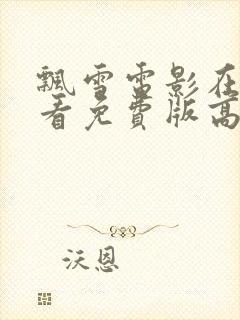 飘雪雷影在
看免费版高
沃恩